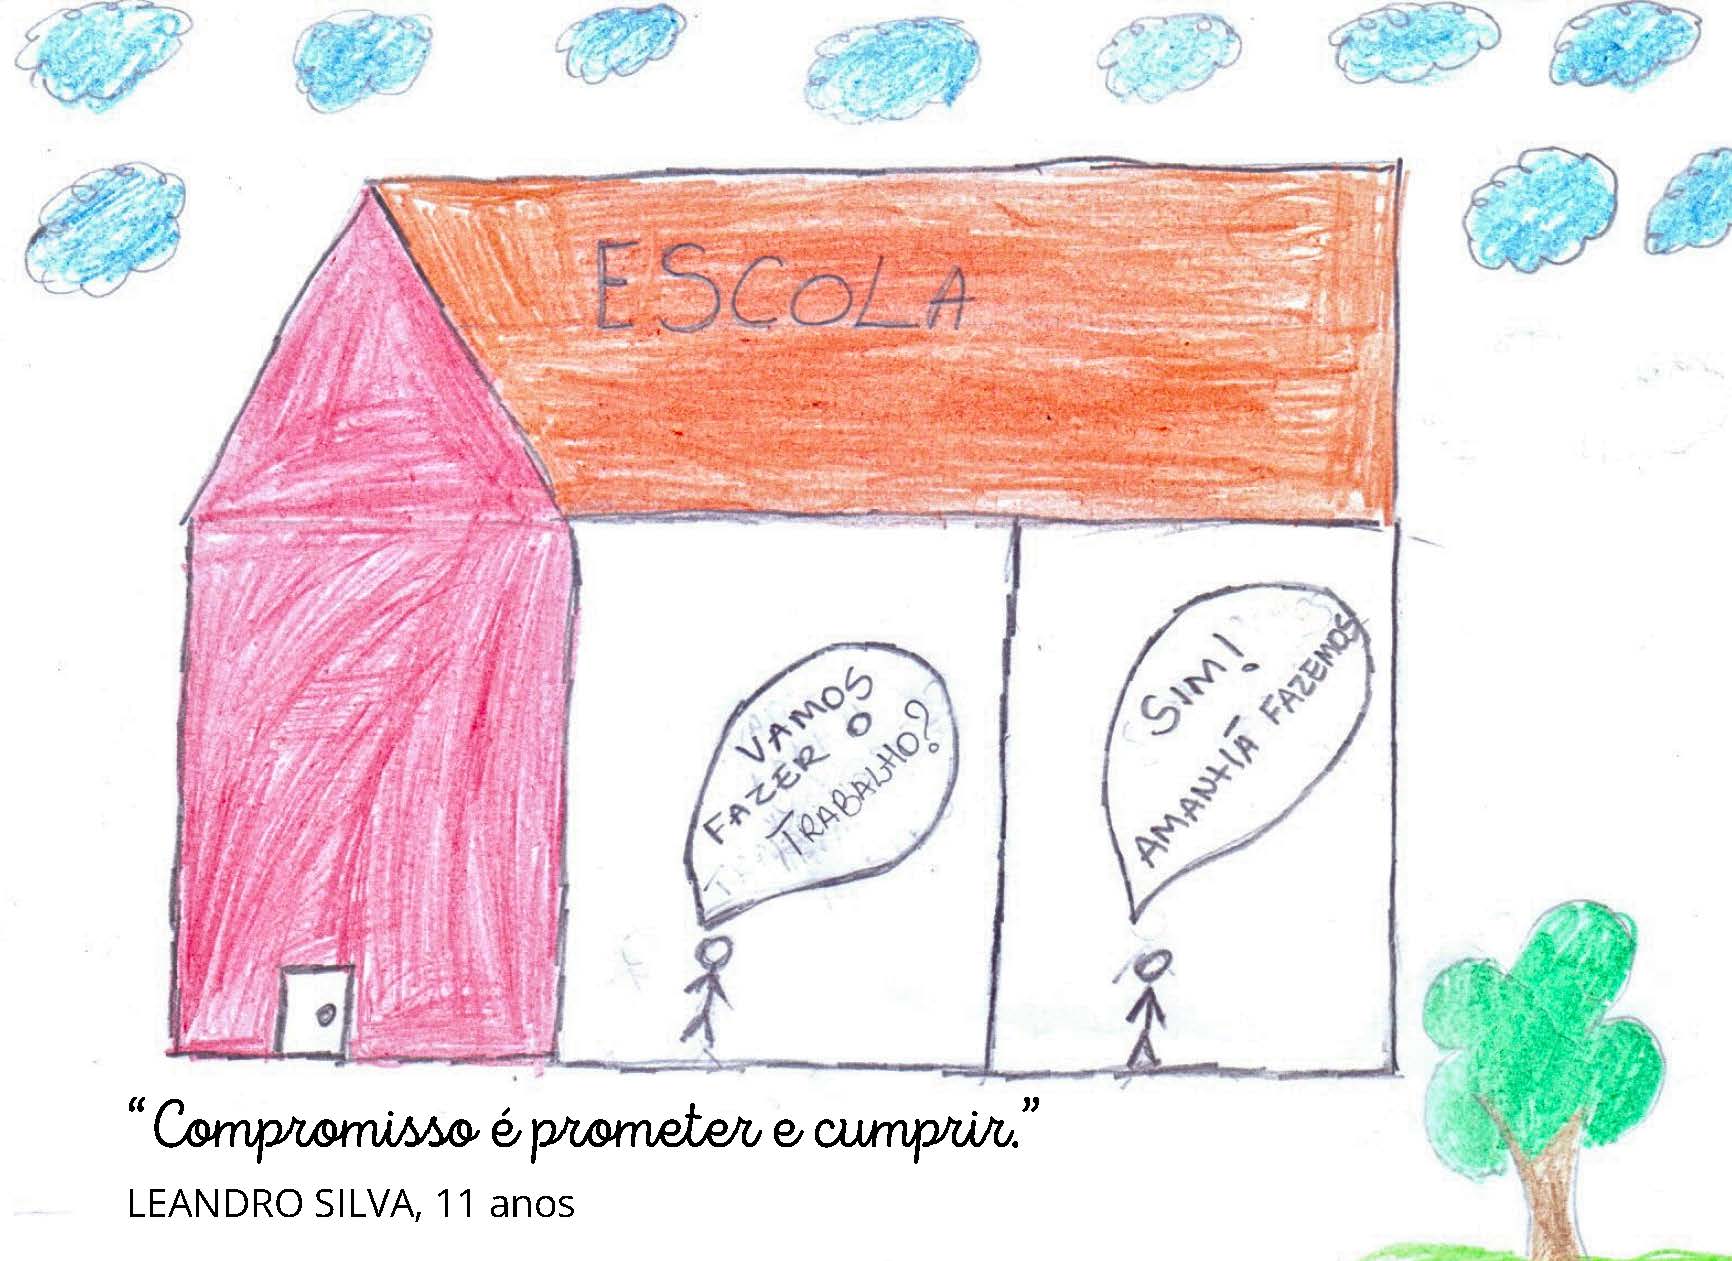 ESCOLA
VAMOS
FAZER O
TRABALHO?
SIM!
AMANHÃ FAZEMOS
“Compromisso é prometer e cumprir.”
LEANDRO SILVA, 11 anos